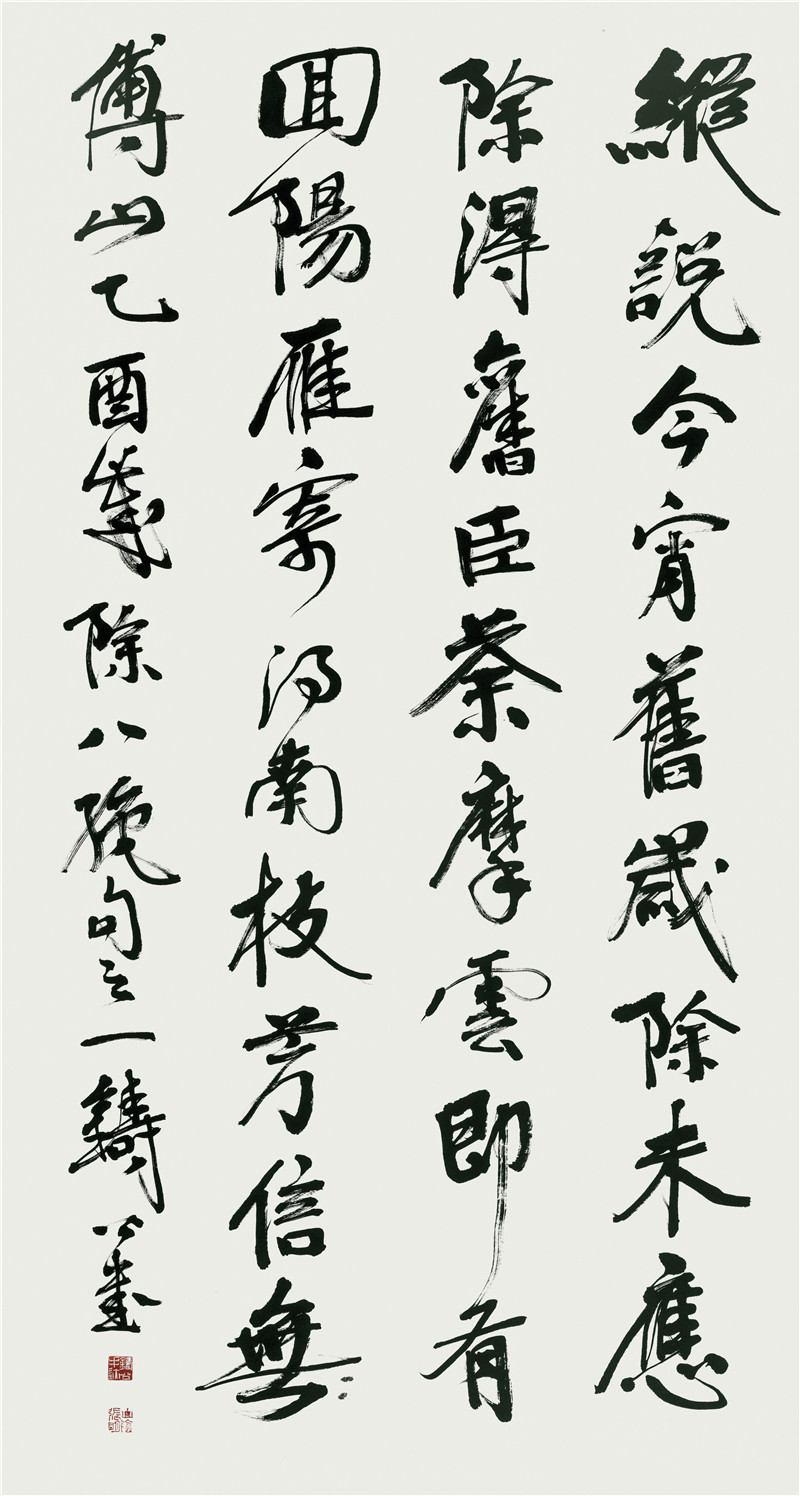 縱說今宵舊歲除未應
除得舊臣荼摩雲即有
回陽雁寄得南枝芳信無
傅山乙酉歲除八絕句之一鑄公書